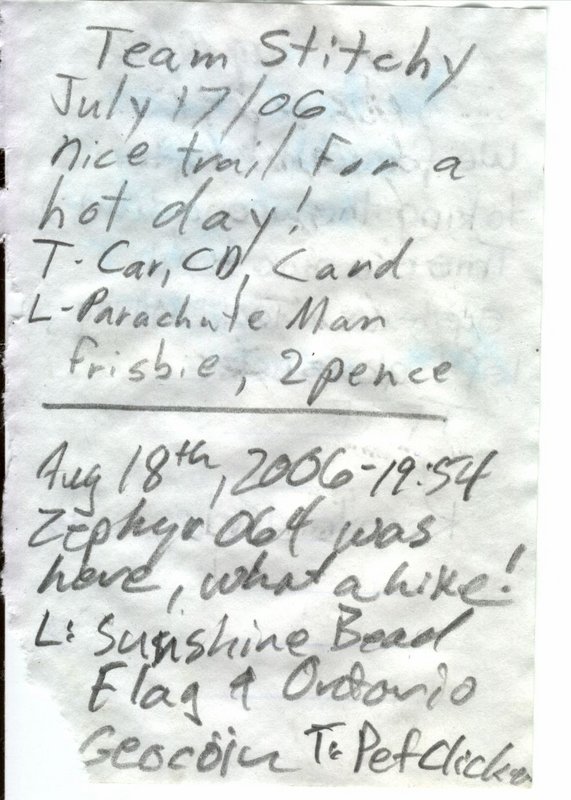 Team Stitchy
July 17/06
nice trail For a
hot day!
T- Car, CD, Card
L- Parachute Man
frisbie, 2 pence
Aug 18th, 2006-19:54
Zephyr 064 was
here, what a hike!
L: Sunshine Bead
Flag & Ontario
Geocoin T: Pet Clicker